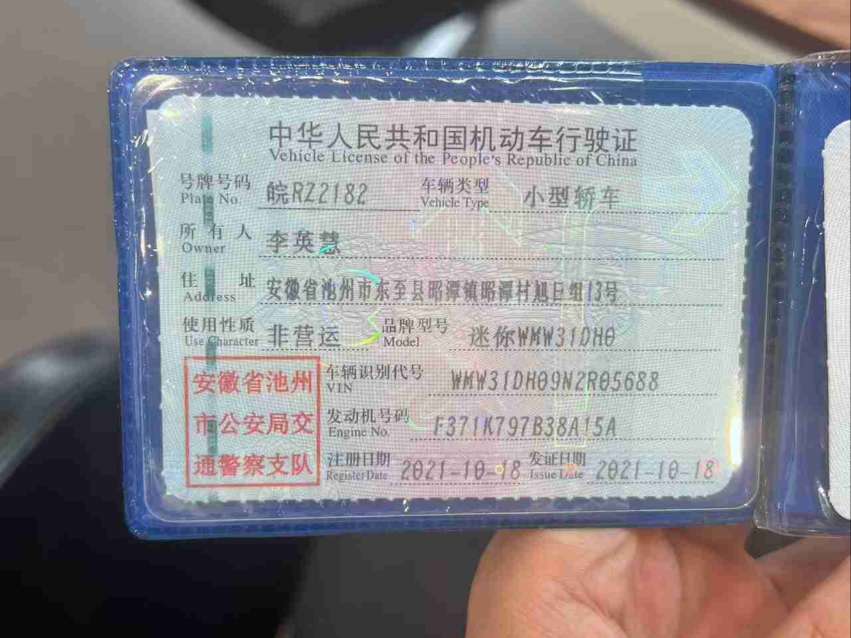 中华人民共和国机动车行驶证
Vehicle License of the People's Republic of China
号牌号码 皖RZ2182 车辆类型 小型轿车
Plate No. Vehicle Type
所有人 李英慧
Owner
住址 安徽省池州市东至县昭潭镇昭潭村旭日组13号
Address
使用性质 非营运 品牌型号 迷你WMW31DH0
Use Character Model
车辆识别代号 WMW31DH09N2R05688
VIN
发动机号码 F371K797B38A15A
Engine No.
注册日期 2021-10-18 发证日期 2021-10-18
Register Date Issue Date
安徽省池州
市公安局交
通警察支队